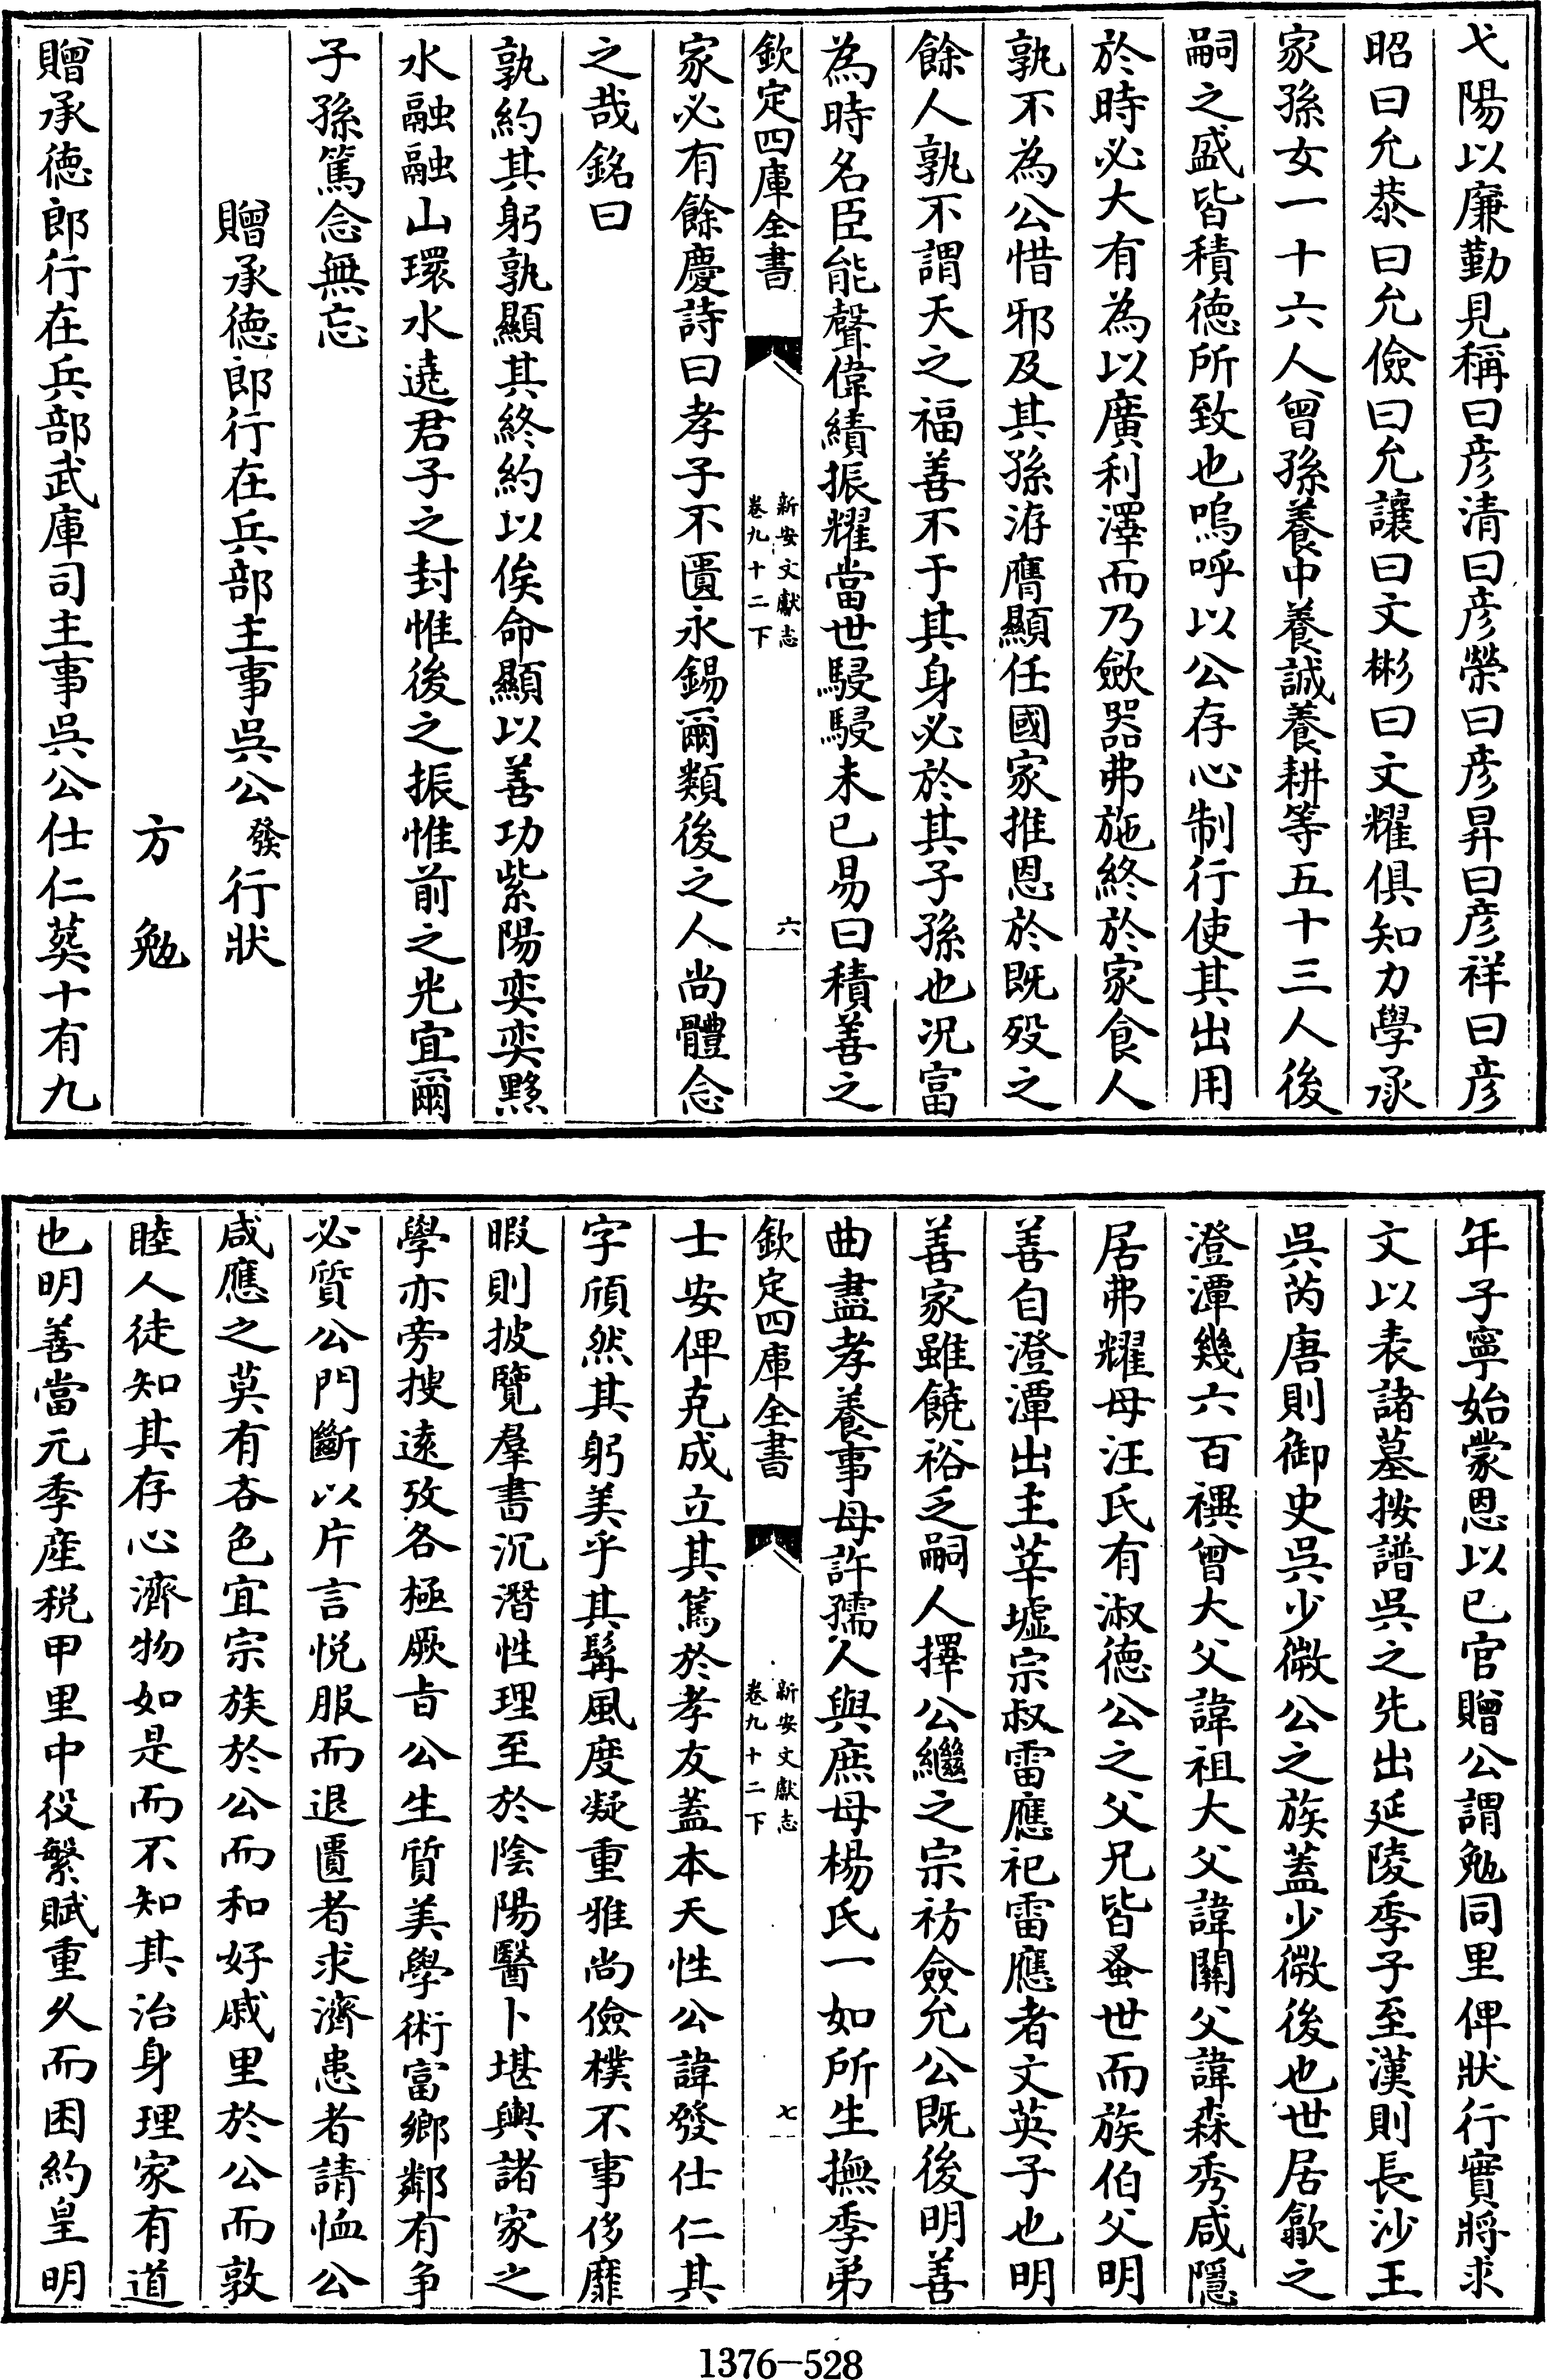 弋陽以廉勤見稱曰彦清曰彦榮曰彦昇曰彦祥曰彦
昭曰允恭曰允儉曰允讓曰文彬曰文耀俱知力學承
家孫女一十六人曾孫養中養誠養耕等五十三人後
嗣之盛皆積德所致也嗚呼以公存心制行使其出用
於時必大有為以廣利澤而乃歛器弗施終於家食人
孰不為公惜邪及其孫洊膺顯任國家推恩於既歿之
餘人孰不謂天之福善不于其身必於其子孫也况富
為時名臣能聲偉績振耀當世駸駸未已易曰積善之
欽定四庫全書
新安文獻志
卷九十二下
六
家必有餘慶詩曰孝子不匱永錫爾類後之人尚體念
之哉銘曰
孰約其躬孰顯其終約以俟命顯以善功紫陽奕奕黟
水融融山環水遶君子之封惟後之振惟前之光宜爾
子孫篤念無忘
贈承德郎行在兵部主事吳公發行狀
方勉
贈承德郎行在兵部武庫司主事吳公仕仁葬十有九
年子寧始蒙恩以已官贈公謂勉同里俾狀行實將求
文以表諸墓按譜吳之先出延陵季子至漢則長沙王
吳芮唐則御史吳少微公之族蓋少微後也世居歙之
澄潭幾六百禩曾大父諱祖大父諱關父諱森秀咸隱
居弗耀母汪氏有淑德公之父兄皆蚤世而族伯父明
善自澄潭出主莘墟宗叔雷應祀雷應者文英子也明
善家雖饒裕乏嗣人擇公繼之宗祊僉允公既後明善
曲盡孝養事母許孺人與庶母楊氏一如所生撫季弟
欽定四庫全書
新安文獻志
卷九十二下
七
士安俾克成立其篤於孝友蓋本天性公諱發仕仁其
字頎然其躬美乎其髯風度凝重雅尚儉樸不事侈靡
暇則披覽羣書沉潛性理至於陰陽醫卜堪輿諸家之
學亦旁搜遠攷各極厥旨公生質美學術富鄉鄰有争
必質公門斷以片言悦服而退匱者求濟患者請恤公
咸應之莫有吝色宜宗族於公而和好戚里於公而敦
睦人徒知其存心濟物如是而不知其治身理家有道
也明善當元季産税甲里中役繁賦重久而困約皇明
1376-528